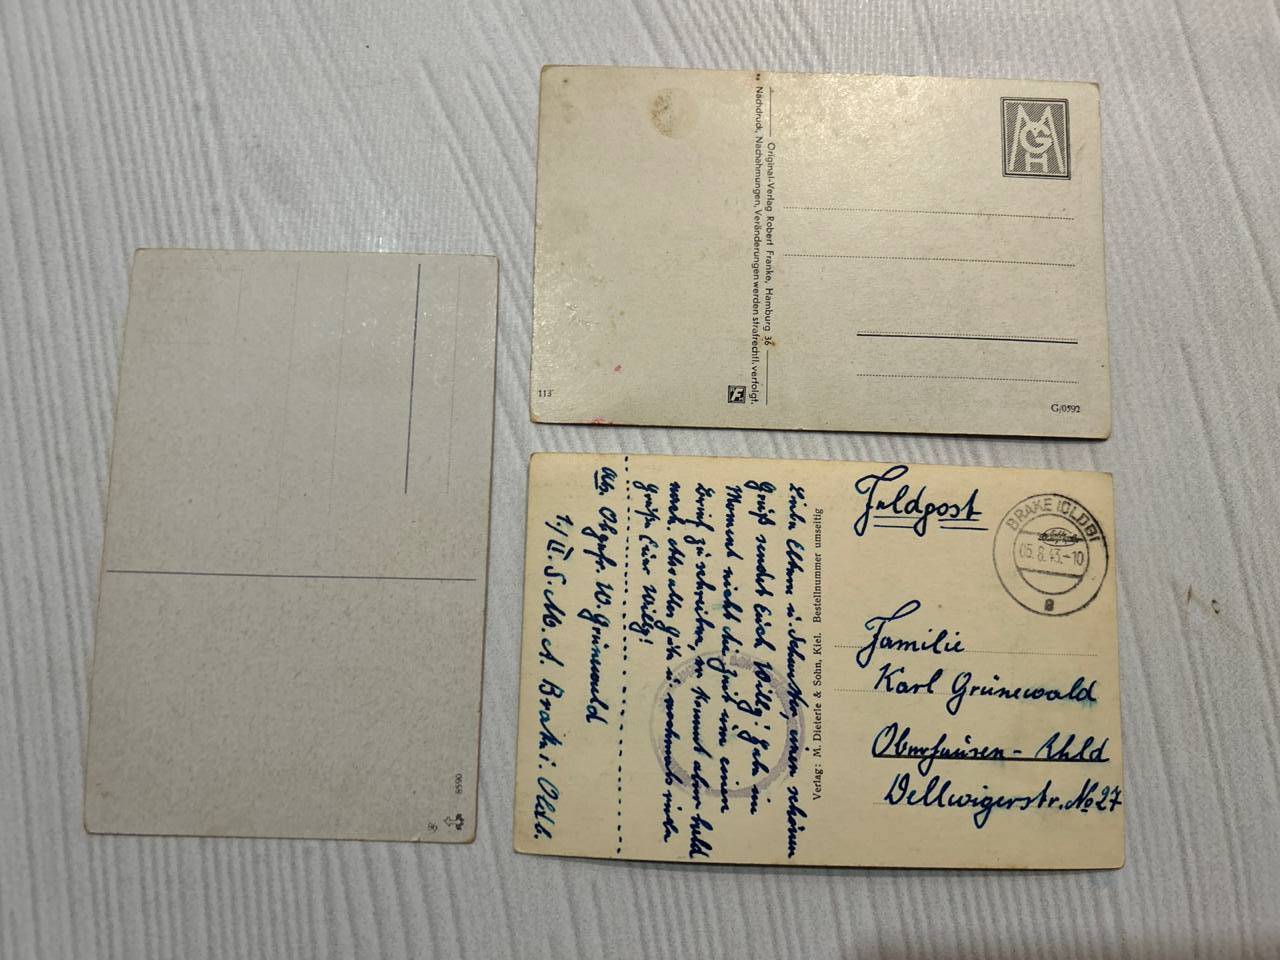 MGH
Original-Verlag Robert Franke, Hamburg 36
Nachdruck, Nachahmungen, Veränderungen werden strafrechtl. verfolgt.
113
G/0592
8590
Feldpost
BRAKE (OLDB)
05.8.43.-10
a
Familie
Karl Grünewald
Oberhausen-Rhld
Dellwigerstr. No 27
Verlag: M. Dieterle & Sohn, Kiel. Bestellnummer umseitig
Liebe Eltern u. Schwester, einen schönen
Gruß sendet Euch Willy! Habe im
Moment nicht die Zeit um einen
Brief zu schreiben, er kommt aber bald
nach. Also alles Gute u. nochmals viele
Grüße Euer Willy!
Abs. Obgefr. W. Grünewald
1./II. S.M.A. Brake i. Oldb.